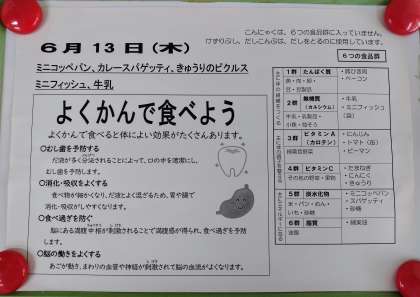 こんにゃくは、6つの食品群に入っていません。
けずりぶし、だしこんぶは、だしをとるのに使用しています。
6月13日(木)
ミニコッペパン、カレースパゲッティ、きゅうりのピクルス
ミニフィッシュ、牛乳
よくかんで食べよう
よくかんで食べると体によい効果がたくさんあります。
○むし歯を予防する
だ液が多く分泌されることによって、口の中を清潔にし、
むし歯を予防します。
○消化・吸収をよくする
食べ物が細かくなり、だ液とよく混ざるため、胃や腸で
消化・吸収がしやすくなります。
○食べ過ぎを防ぐ
脳にある満腹中枢が刺激されることで満腹感が得られ、食べ過ぎを予防
します。
○脳の働きをよくする
あごが動き、まわりの血管や神経が刺激されて脳の血流がよくなります。
6つの食品群
1群 たんぱく質
魚・肉・卵
豆・豆製品
・豚ひき肉
・ベーコン
2群 無機質
(カルシウム)
牛乳・乳製品・
小魚・海そう
・牛乳
・ミニフィッシュ
(袋)
3群 ビタミンA
(カロテン)
緑黄色野菜
・にんじん
・トマト(缶)
・ピーマン
4群 ビタミンC
その他の野菜・果物
・たまねぎ
・にんにく
・きゅうり
5群 炭水化物
米・パン・めん・
いも・砂糖
・ミニコッペパン
・スパゲッティ
・砂糖
6群 脂質
油脂
・綿実油